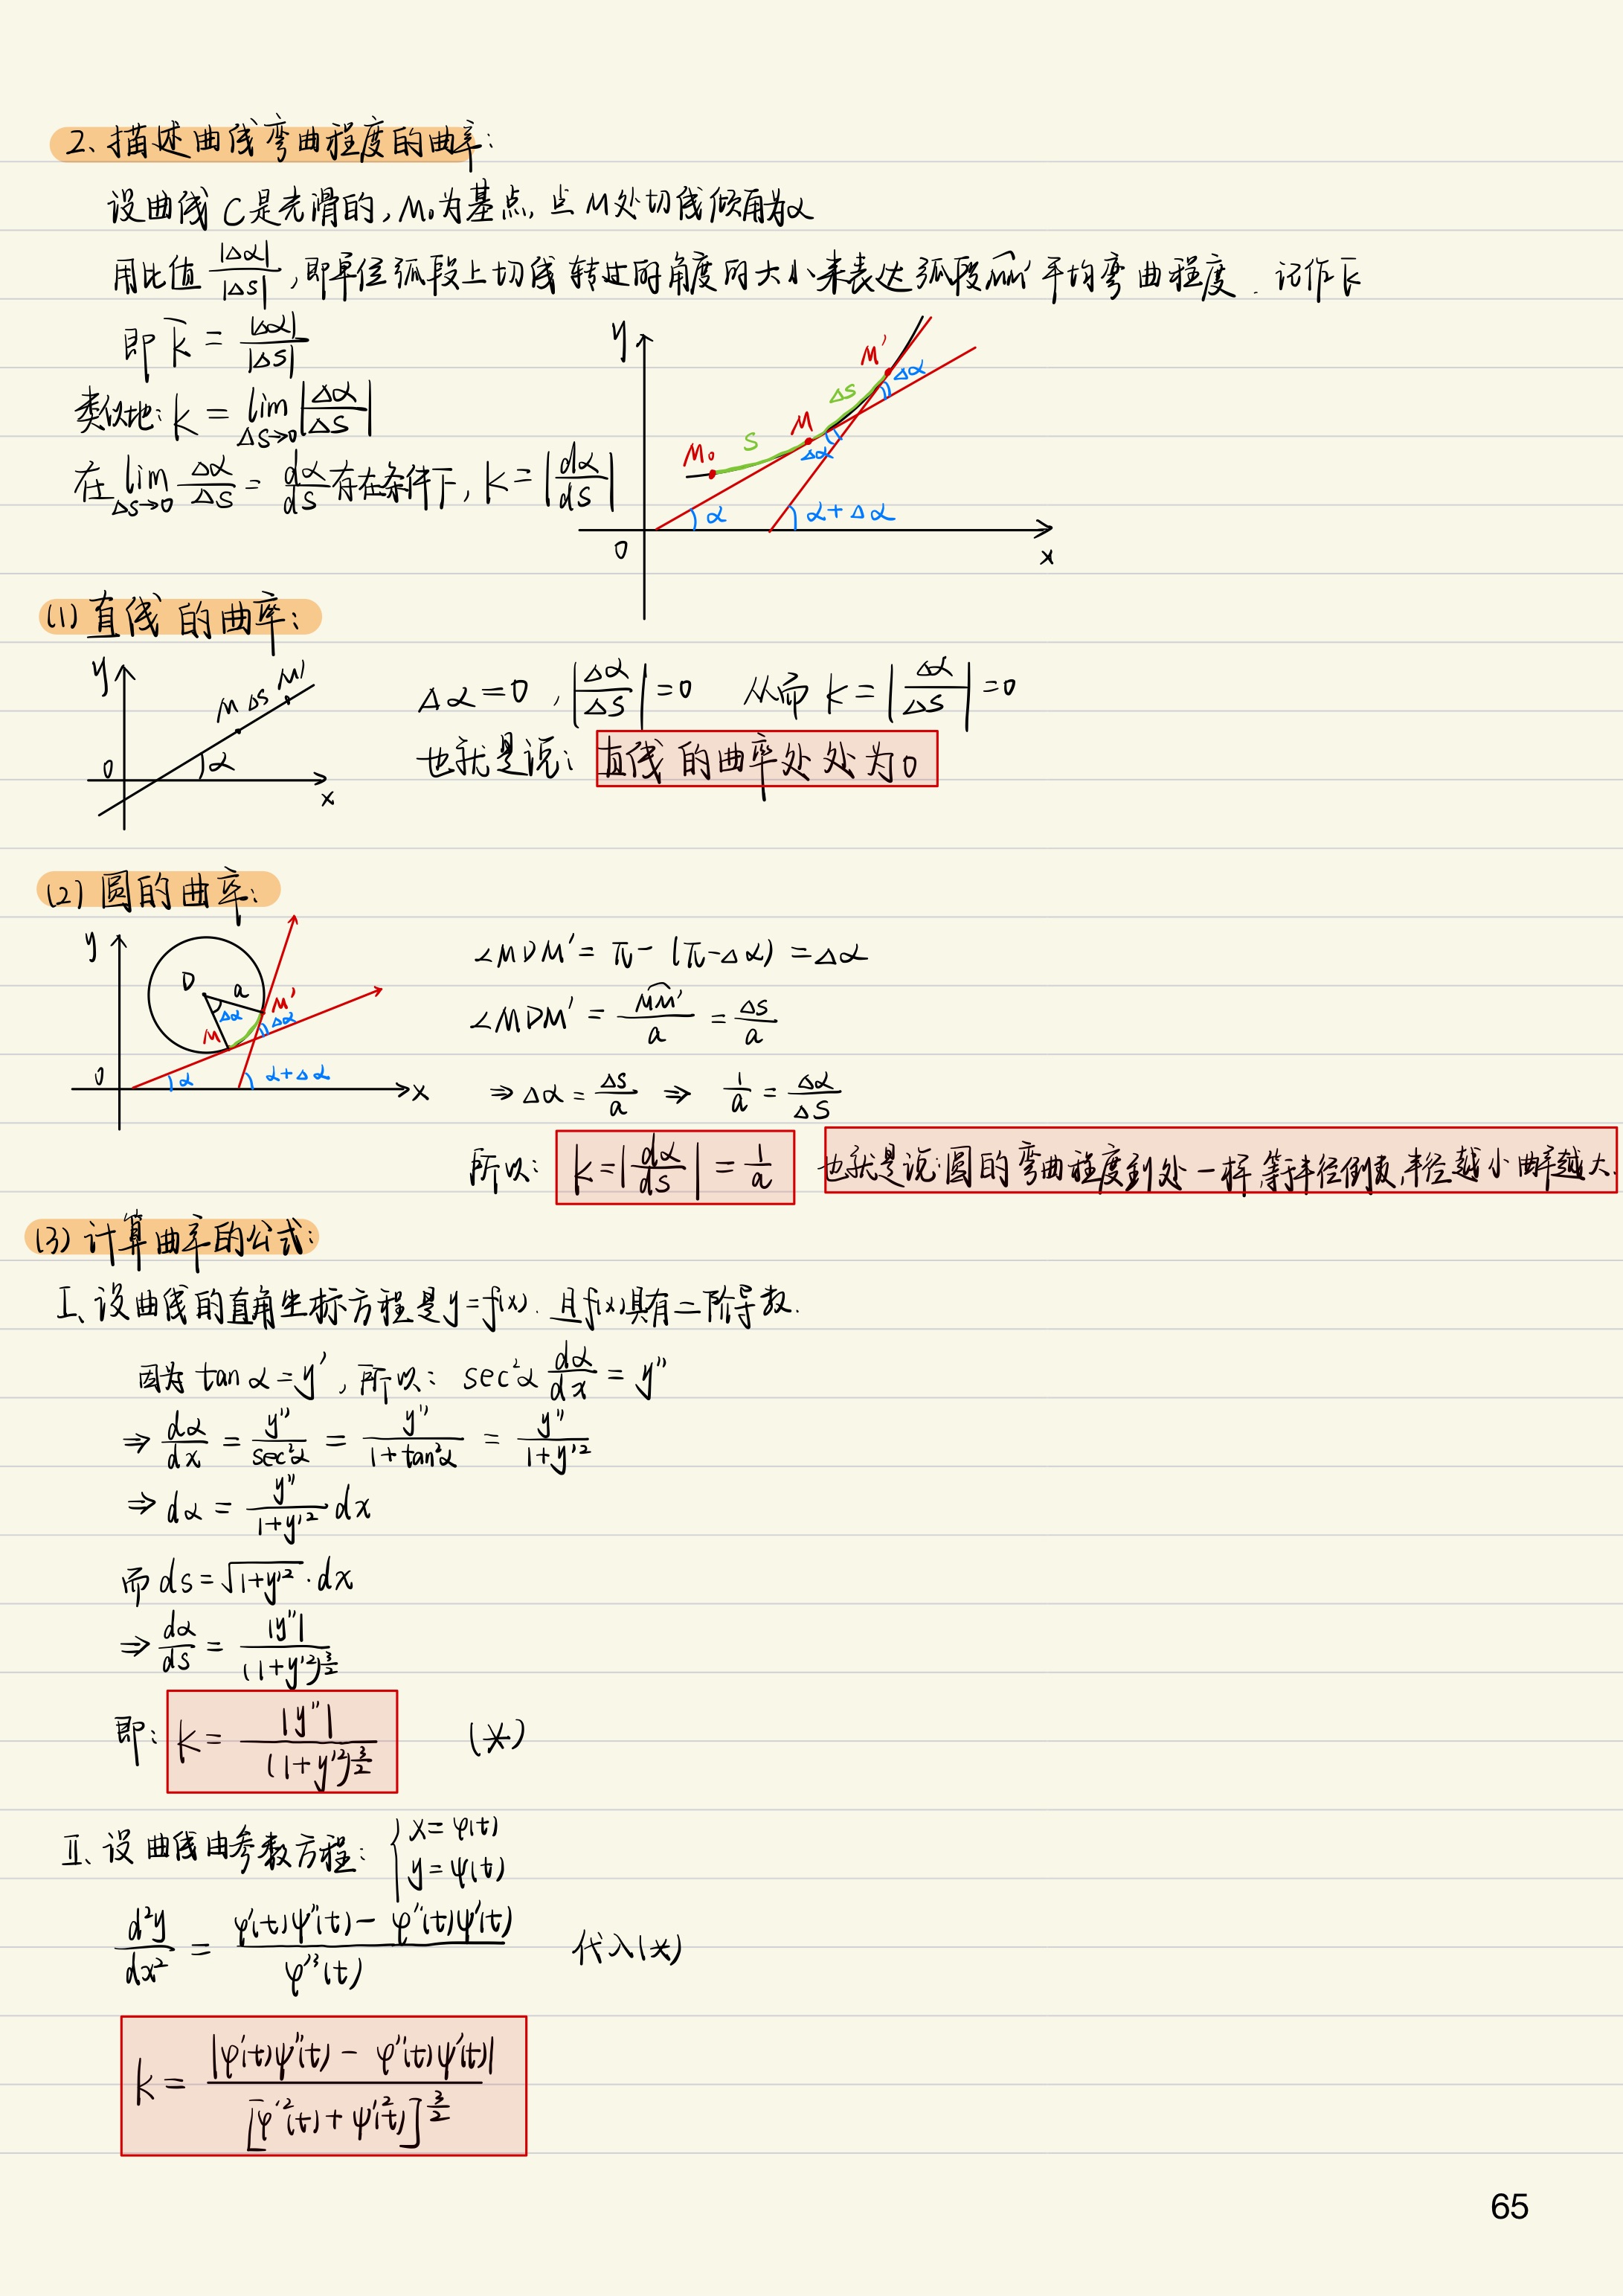 2、描述曲线弯曲程度的曲率:
设曲线C是光滑的, M₀为基点, 点M处切线倾角为α
用比值 |Δα|/|Δs| , 即单位弧段上切线转过的角度的大小来表达弧段MM′平均弯曲程度. 记作k̅
即 k̅ = |Δα|/|Δs|
类似地: k = lim_{Δs→0} |Δα/Δs|
在 lim_{Δs→0} Δα/Δs = dα/ds 存在条件下, k = |dα/ds|
y
M′
Δα
Δs
M
S
M₀
Δα
α
α+Δα
0
x
(1) 直线的曲率:
y
M Δs M′
0
α
x
Δα = 0 , |Δα/Δs| = 0 从而 k = |Δα/Δs| = 0
也就是说: 直线的曲率处处为0
(2) 圆的曲率:
y
D
a
M′
Δα
Δα
M
0
α
α+Δα
x
∠MDM′ = π - (π-Δα) = Δα
∠MDM′ = MM′/a = Δs/a
⇒ Δα = Δs/a ⇒ 1/a = Δα/Δs
所以: k = |dα/ds| = 1/a 也就是说:圆的弯曲程度到处一样,等于半径倒数,半径越小曲率越大.
(3) 计算曲率的公式:
I、设曲线的直角坐标方程是y=f(x). 且f(x)具有二阶导数.
因为 tan α = y′, 所以: sec²α dα/dx = y″
⇒ dα/dx = y″/sec²α = y″/(1+tan²α) = y″/(1+y′²)
⇒ dα = y″/(1+y′²) dx
而 ds = √(1+y′²) · dx
⇒ dα/ds = |y″|/(1+y′²)^(3/2)
即: k = |y″|/(1+y′²)^(3/2) (*)
II、设曲线由参数方程: { x = φ(t)
y = ψ(t)
d²y/dx² = (φ′(t)ψ″(t) - φ″(t)ψ′(t))/φ′³(t) 代入(*)
k = |φ′(t)ψ″(t) - φ″(t)ψ′(t)|/[φ′²(t) + ψ′²(t)]^(3/2)
65